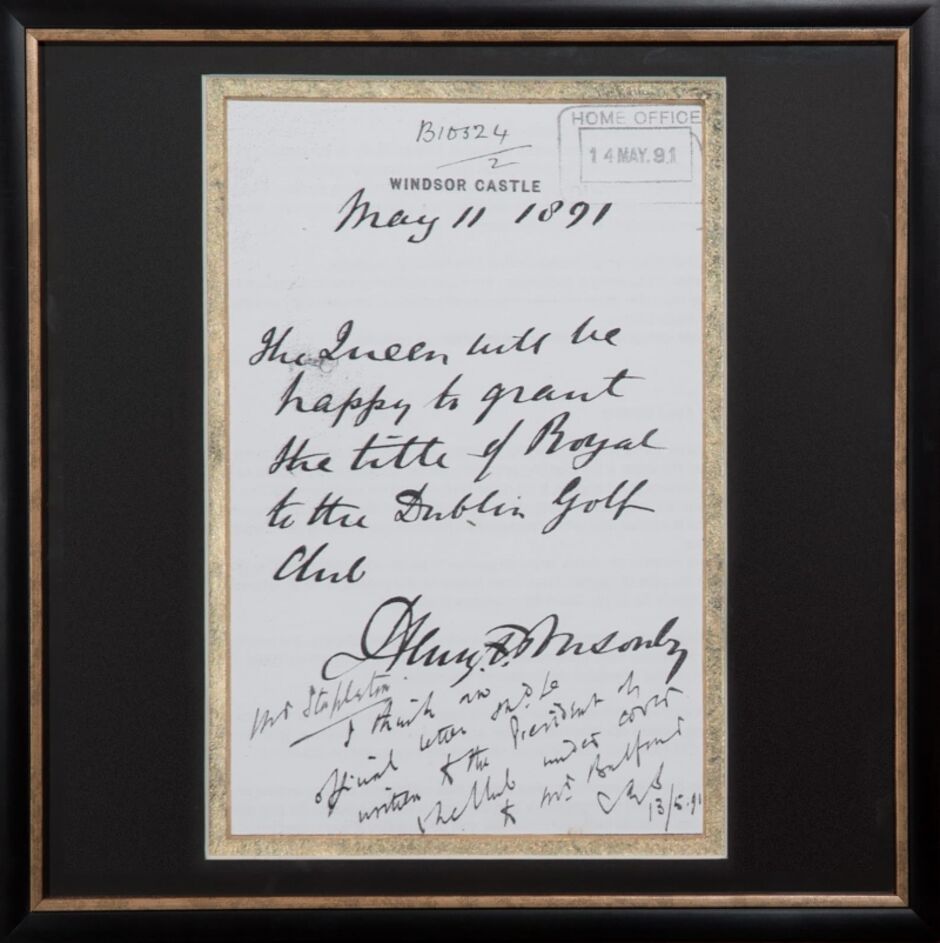 B10324
2
HOME OFFICE
14 MAY. 91
WINDSOR CASTLE
May 11 1891
The Queen will be
happy to grant
the title of Royal
to the Dublin Golf
Club
Henry F. Ponsonby
Mr Stapleton
I think an
official letter shd. be
written to the President of
the Club under cover
to Mr. Balfour
13/5.91